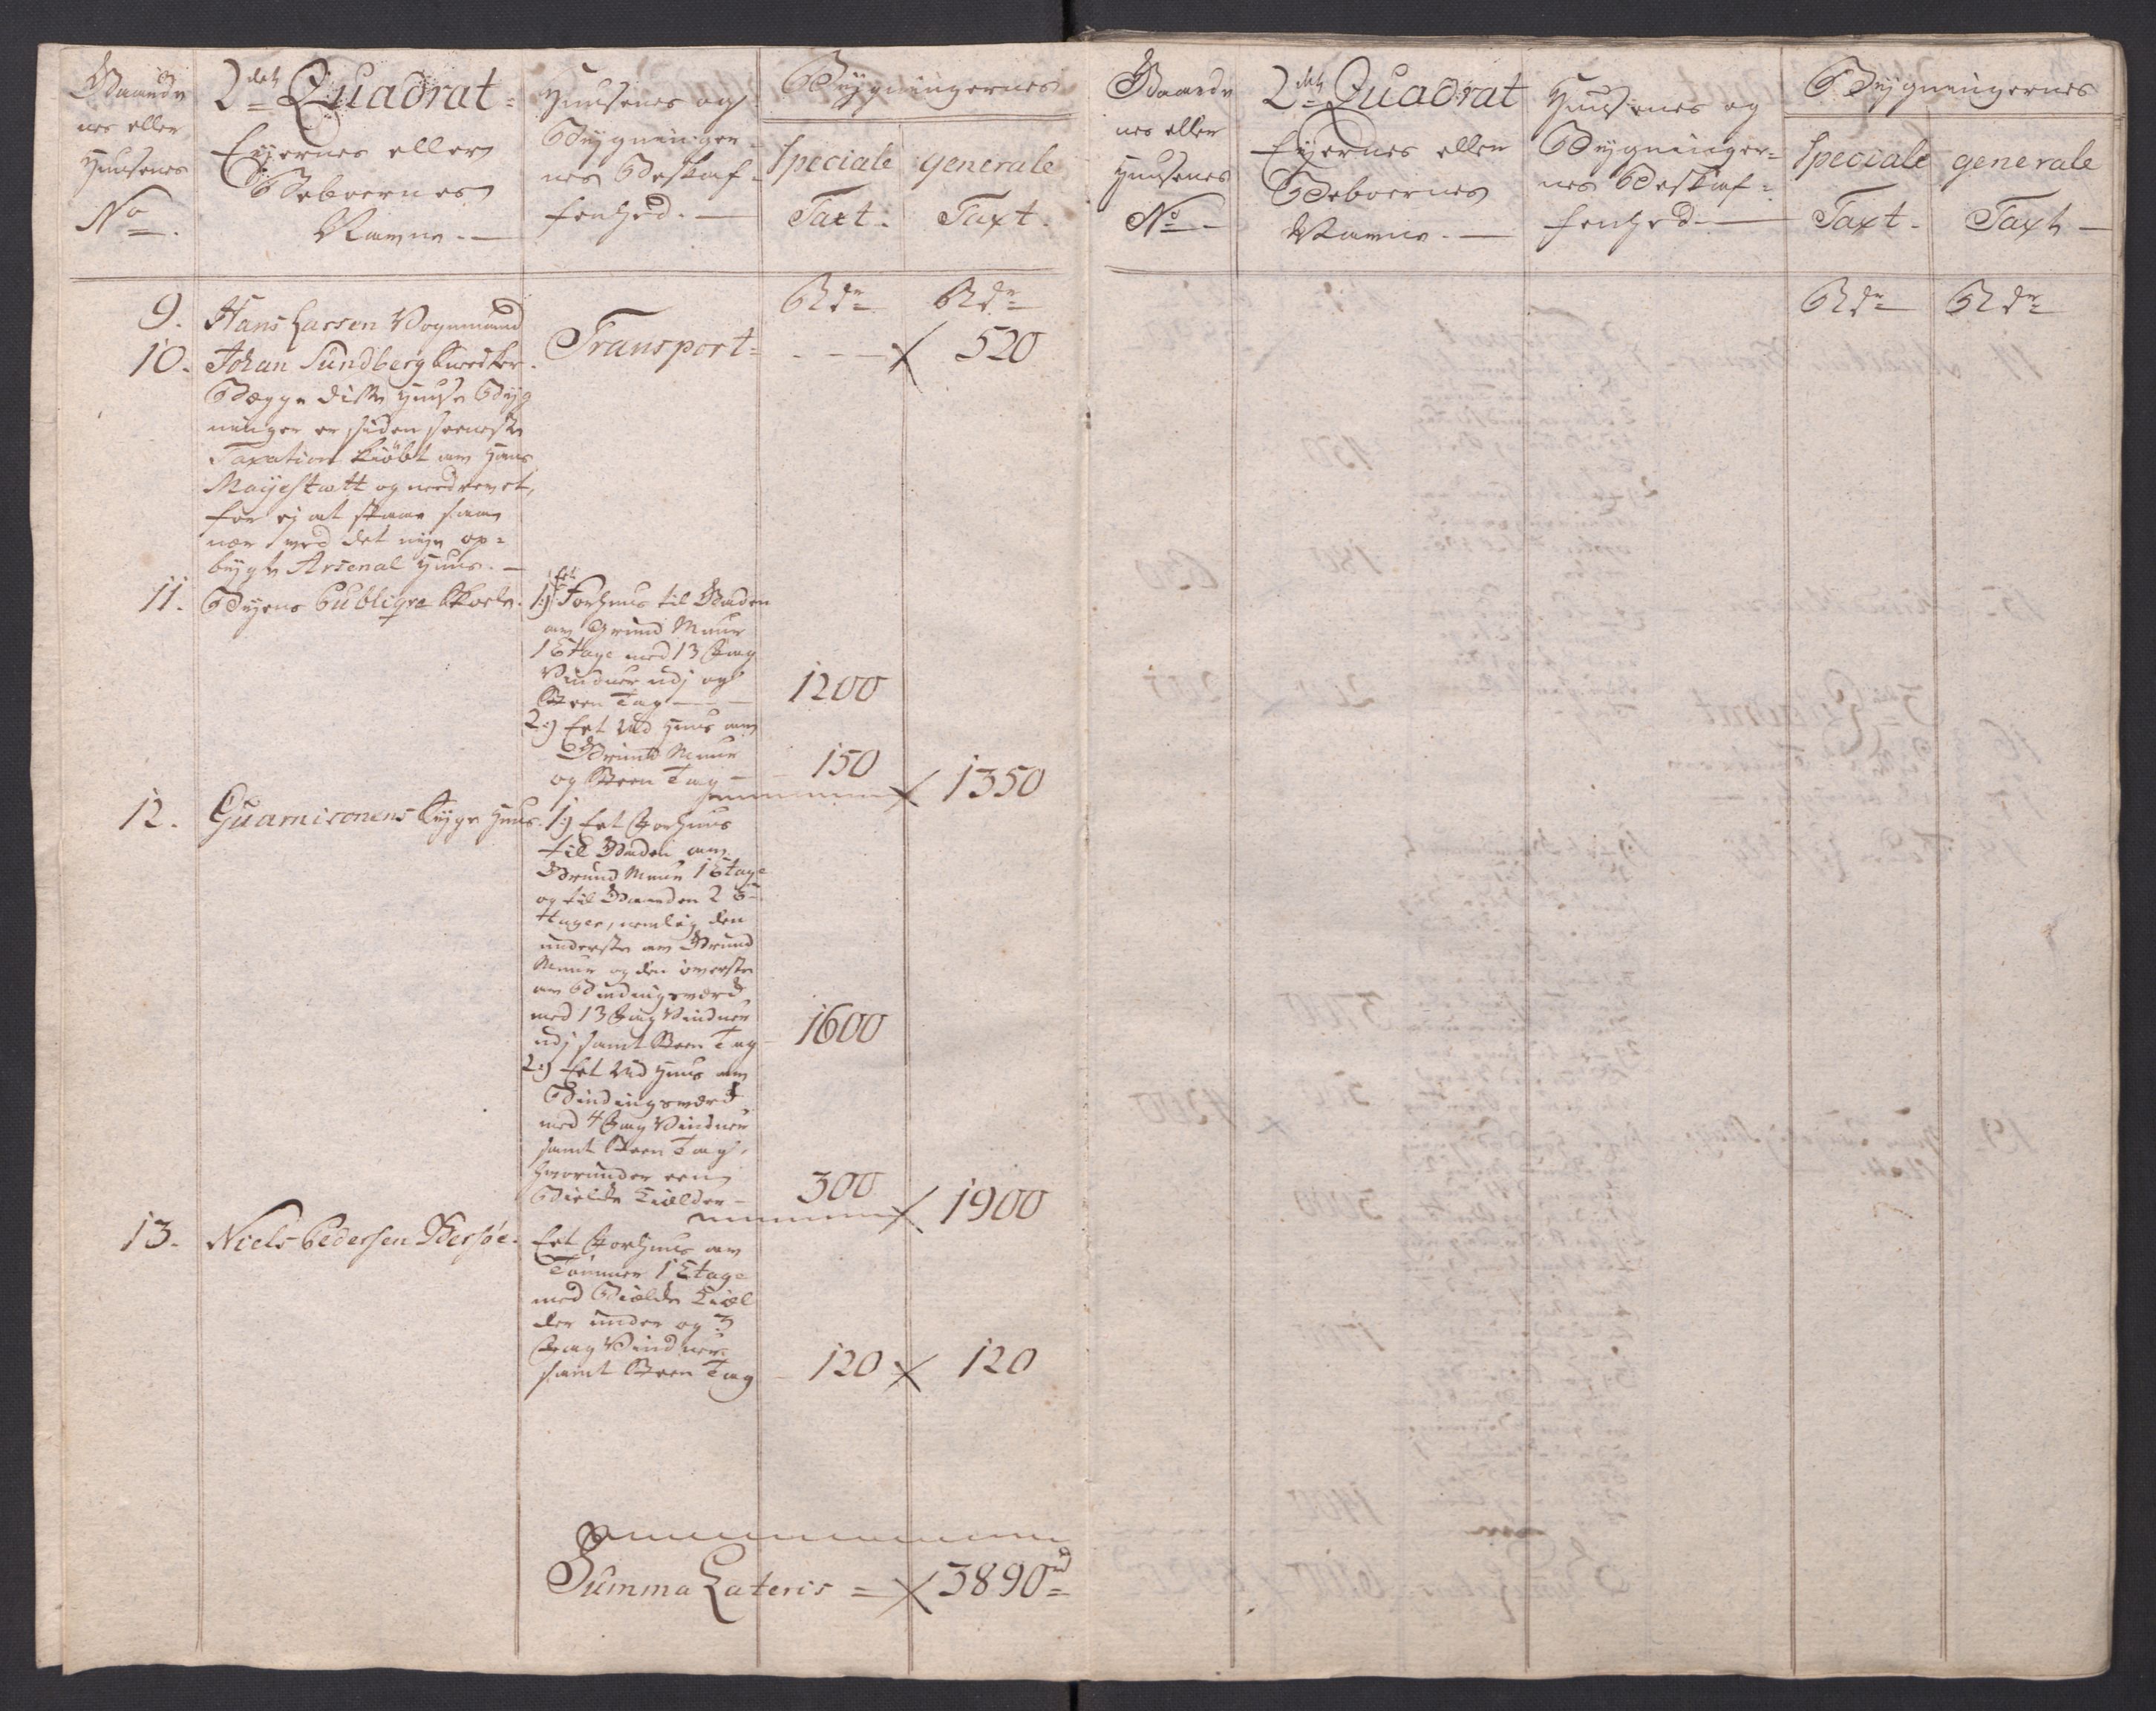 Gaarde
nes eller
Huusenes
No
2den Quadrat
Eyernes eller
Beboernes
Navne.
Huusenes og
Bygninger
nes Beskaf-
fenhed.
Bygningernes
Speciale
Taxt.
generale
Taxt.
Rdr
Rdr
9. Hans Larsen Vognmand
10. Johan Sundberg Snedker.
Transport= 520
Begge diste Huuse Byg
ninger er siden seeneste
Taxation kiöbt av Hans
Mayestætt og needrevet,
for ej at staae saa
nær ved det nye op=
bygte Arsenal Huus.
11. Byens Publiqve Skoele.
1) Eet Forhuus til Gaden
av Grund Muur
1 Etage med 13 Fag
Vinduer udj og
Steen Tag 1200
2) Eet Ud Huus av
Grund Muur
og Steen Tag 150
1350
12. Guarnisonens Syge Huus.
1) Eet Forhuus
til Gaden av
Grund Muur 1 Etage
og til Gaarden 2 E=
tager, nemlig den
underste av Grund
Muur og den överste
av Bindingsverk
med 13 Fag Vinduer
udj samt Steen Tag 1600
2) Eet Ud Huus av
Bindingsverk
med 4 Fag Vinduer
samt Steen Tag,
hvorunder een
Bielke Kielder 300
1900
13. Niels Pedersen
Eet Forhuus av
Tömmer 1 Etage
med Bielke Kiel
der under og 3
Fag Vinduer
samt Steen Tag 120 120
Summa Lateris = 3890rd
Gaarde
nes eller
Huusenes
No
2den Quadrat
Eyernes eller
Beboernes
Navne.
Huusenes og
Bygninger=
nes Beskaf=
fenhed.
Bygningernes
Speciale
Taxt.
generale
Taxt
Rdr
Rdr